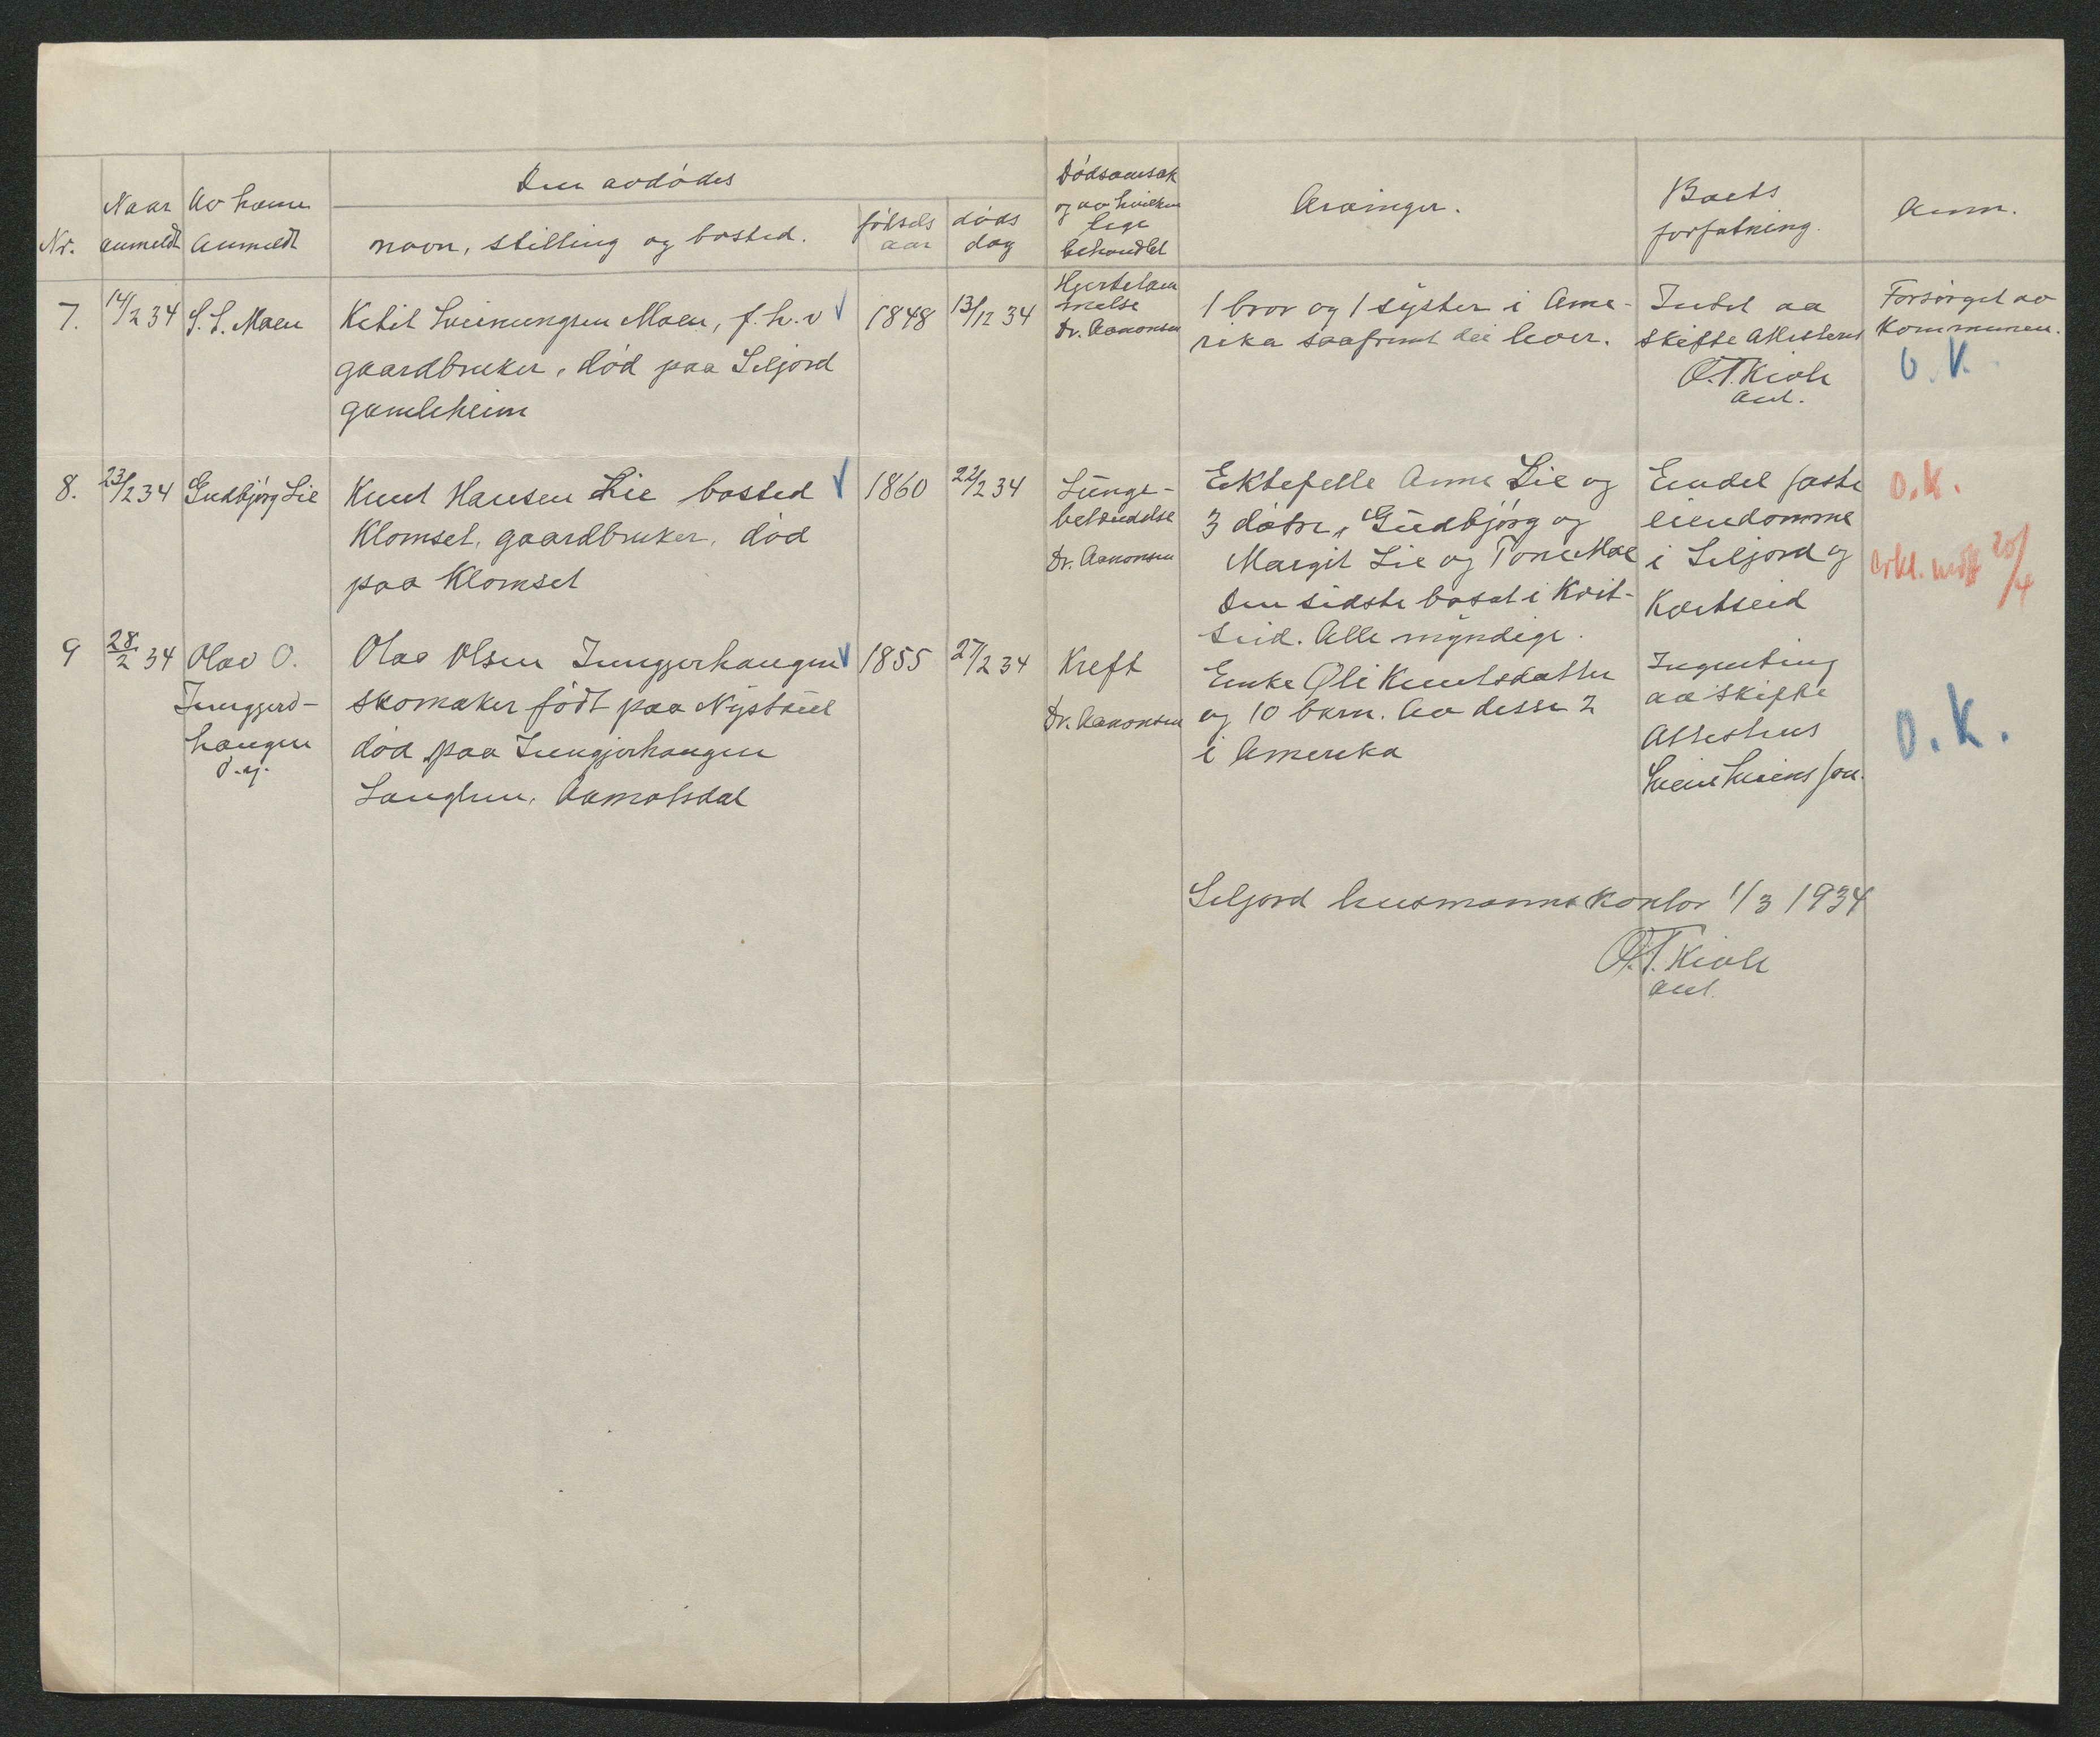 Den avdødes
Nr.
Naar
anmeldt
Av hvem
Anmeldt
navn, stilling og bosted.
fødsels
aar
døds
dag
Dødsaarsak
og av hvilken
lege
behandlet
Arvinger.
Boets
forfatning.
Anm.
7.
14/2 34
S. S. Moen
Ketil Sveinungsen Moen, f. h. v
gaardbruker, død paa Seljord
gamleheim
1848
13/12 34
Hjertelam
melse
Dr. Aakonsen
1 bror og 1 syster i Ame-
rika saafremt dei lever.
Intet aa
skifte Attesteres
O.T. Kivle
Forsørget av
Kommunen.
O. K.
8.
23/2 34
Gudbjørg Lie
Knut Hansen Lie bosted
Klomset, gaardbruker, død
paa Klomset
1860
22/2 34
Lunge-
betendelse
Dr. Aakonsen
Ektefelle Anne Lie og
3 døtre, Gudbjørg og
Margit Lie og Tone Moe
den sidste bosat i Kvit-
seid. Alle myndige.
Endel faste
eiendomme
i Seljord og
Kvitseid
O.K.
20/4
9
28/2 34
Olav O.
haugen
Olav Olsen Jungjerhaugen
skomaker født paa Nystaul
død paa Jungjerhaugen
Langlim, Aamotsdal
1855
27/2 34
Kreft
Dr. Aakonsen
Enke Oli Knutsdatter
og 10 barn. Av disse 2
i Amerika
Ingenting
aa skifte
Attesteres
O.K.
Seljord lensmannskontor 1/3 1934
O.T. Kivle